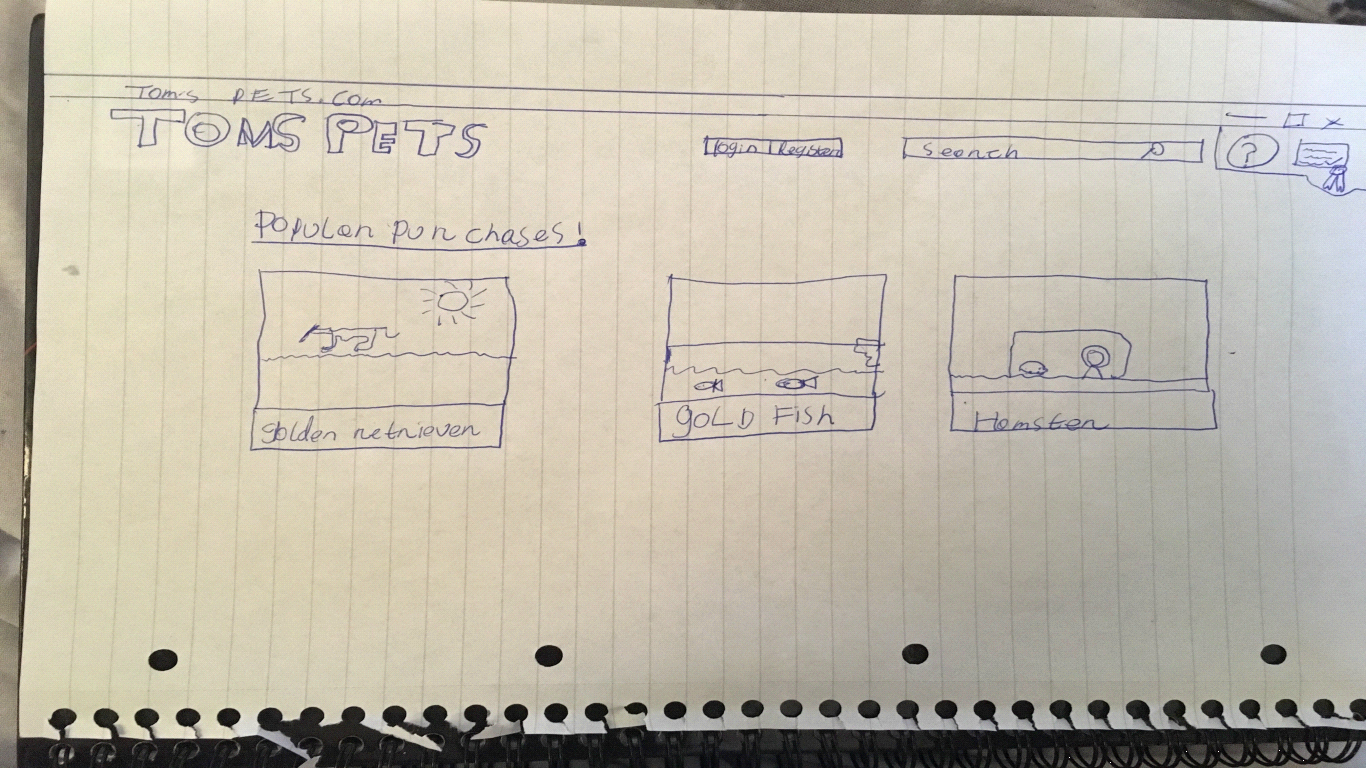 Toms PETS.com
TOMS PETS
login Register
Search
?
Popular purchases!
golden retriever
GOLD Fish
Hamster